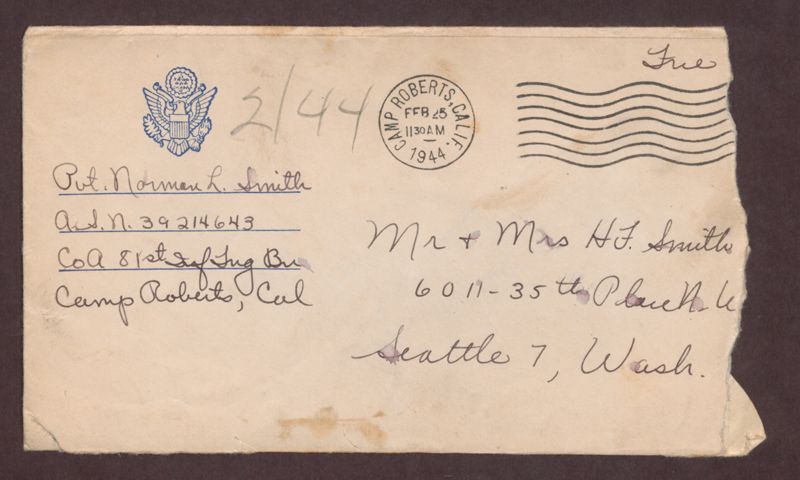 Free
2/44
CAMP ROBERTS, CALIF.
FEB 25
11 30 AM
1944
Pvt. Norman L. Smith
A.S.N. 39214643
Co A 81st Inf Tng Bn
Camp Roberts, Cal
Mr + Mrs H.F. Smith
6011-35th Place N.
Seattle 7, Wash.